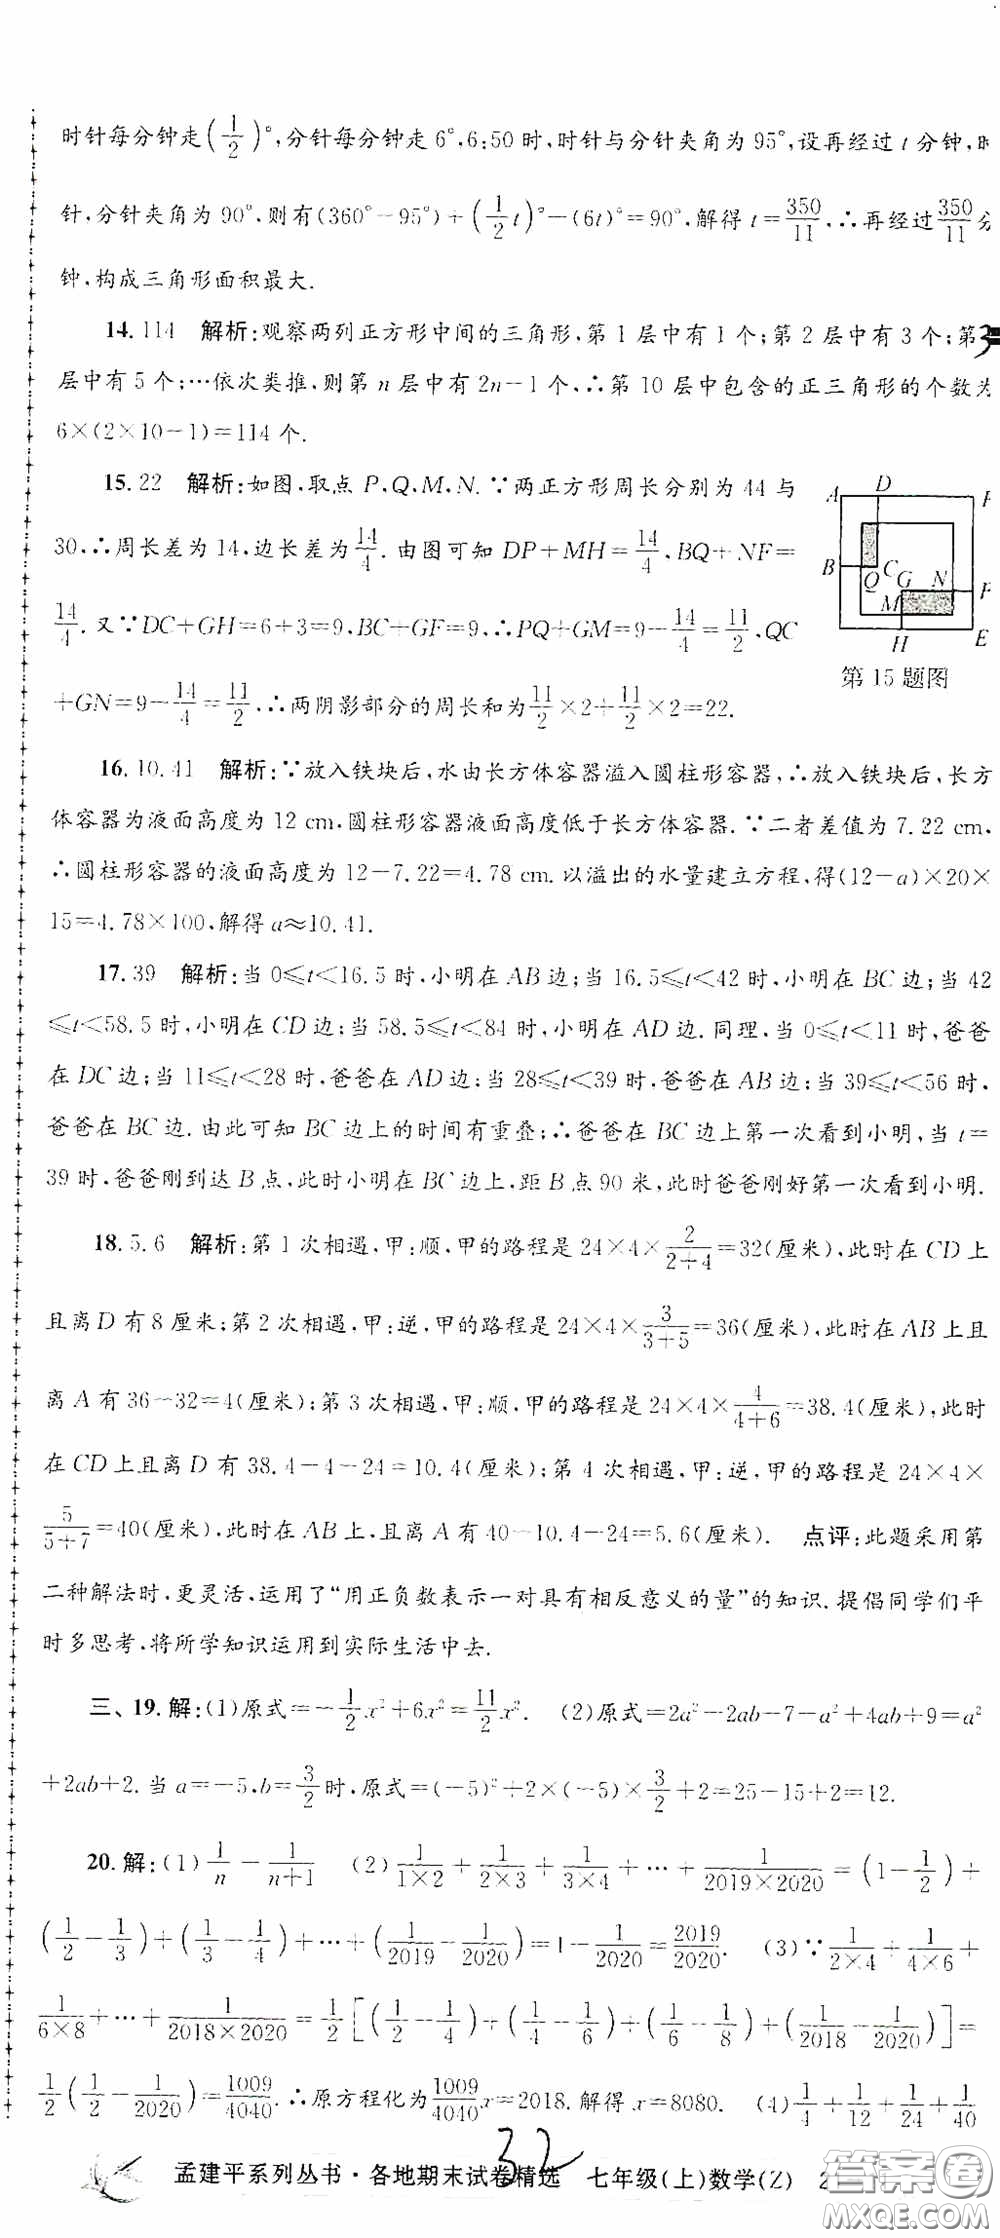 时针每分钟走(1/2)°,分针每分钟走6°,6:50时,时针与分针夹角为95°,设再经过t分钟,时
针,分针夹角为90°,则有(360°-95°)+(1/2 t)°-(6t)°=90°,解得t=350/11,∴再经过350/11分
钟,构成三角形面积最大.
14.114 解析:观察两列正方形中间的三角形,第1层中有1个;第2层中有3个;第3
层中有5个;…依次类推,则第n层中有2n-1个,∴第10层中包含的正三角形的个数为
6×(2×10-1)=114个.
15.22 解析:如图,取点P,Q,M,N.∵两正方形周长分别为44与
30,∴周长差为14,边长差为14/4.由图可知DP+MH=14/4,BQ+NF=
14/4.又∵DC+GH=6+3=9,BC+GF=9,∴PQ+GM=9-14/4=11/2,QC
+GN=9-14/4=11/2,∴两阴影部分的周长和为11/2×2+11/2×2=22.
A D
B Q C G N
M
H E
第15题图
16.10.41 解析:∵放入铁块后,水由长方体容器溢入圆柱形容器,∴放入铁块后,长方
体容器为液面高度为12 cm,圆柱形容器液面高度低于长方体容器.∵二者差值为7.22 cm,
∴圆柱形容器的液面高度为12-7.22=4.78 cm.以溢出的水量建立方程,得(12-a)×20×
15=4.78×100,解得a≈10.41.
17.39 解析:当0≤t<16.5时,小明在AB边;当16.5≤t<42时,小明在BC边;当42
≤t<58.5时,小明在CD边;当58.5≤t<84时,小明在AD边.同理,当0≤t<11时,爸爸
在DC边;当11≤t<28时,爸爸在AD边;当28≤t<39时,爸爸在AB边;当39≤t<56时,
爸爸在BC边.由此可知BC边上的时间有重叠;∴爸爸在BC边上第一次看到小明,当t=
39时,爸爸刚到达B点,此时小明在BC边上,距B点90米,此时爸爸刚好第一次看到小明.
18.5.6 解析:第1次相遇,甲:顺,甲的路程是24×4×2/(2+4)=32(厘米),此时在CD上
且离D有8厘米;第2次相遇,甲:逆,甲的路程是24×4×3/(3+5)=36(厘米),此时在AB上且
离A有36-32=4(厘米);第3次相遇,甲:顺,甲的路程是24×4×4/(4+6)=38.4(厘米),此时
在CD上且离D有38.4-4-24=10.4(厘米);第4次相遇,甲:逆,甲的路程是24×4×
5/(5+7)=40(厘米),此时在AB上,且离A有40-10.4-24=5.6(厘米). 点评:此题采用第
二种解法时,更灵活,运用了“用正负数表示一对具有相反意义的量”的知识.提倡同学们平
时多思考,将所学知识运用到实际生活中去.
三、19.解:(1)原式=-1/2 x²+6x²=11/2 x². (2)原式=2a²-2ab-7-a²+4ab+9=a²
+2ab+2.当a=-5,b=3/2时,原式=(-5)²+2×(-5)×3/2+2=25-15+2=12.
20.解:(1)1/n-1/(n+1) (2)1/(1×2)+1/(2×3)+1/(3×4)+…+1/(2019×2020)=(1-1/2)+
(1/2-1/3)+(1/3-1/4)+…+(1/2019-1/2020)=1-1/2020=2019/2020. (3)∵1/(2×4)+1/(4×6)+
1/(6×8)+…+1/(2018×2020)=1/2[(1/2-1/4)+(1/4-1/6)+(1/6-1/8)+(1/2018-1/2020)]=
1/2(1/2-1/2020)=1009/4040.∴原方程化为1009/4040 x=2018.解得x=8080. (4)1/4+1/12+1/24+1/40
32
孟建平系列丛书·各地期末试卷精选 七年级(上)数学(Z) 2
答案圈